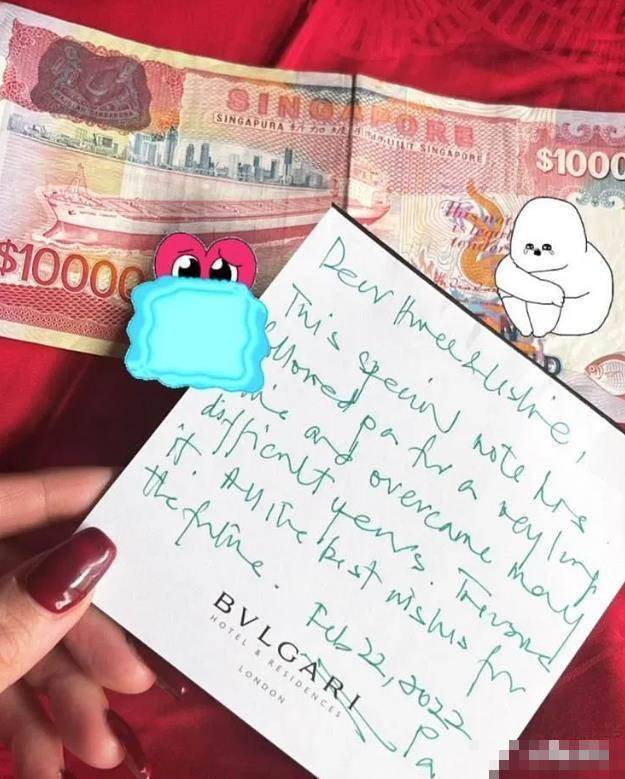 SINGAPORE
SINGAPURA 新加坡 SINGAPORE
$1000
$10000
Dear
This special note has
followed pa for a very long
time and overcame many
difficult years. Treasure
it. All the best wishes for
the future.
Feb 22, 2022
Pa
BVLGARI
HOTEL & RESIDENCES
LONDON